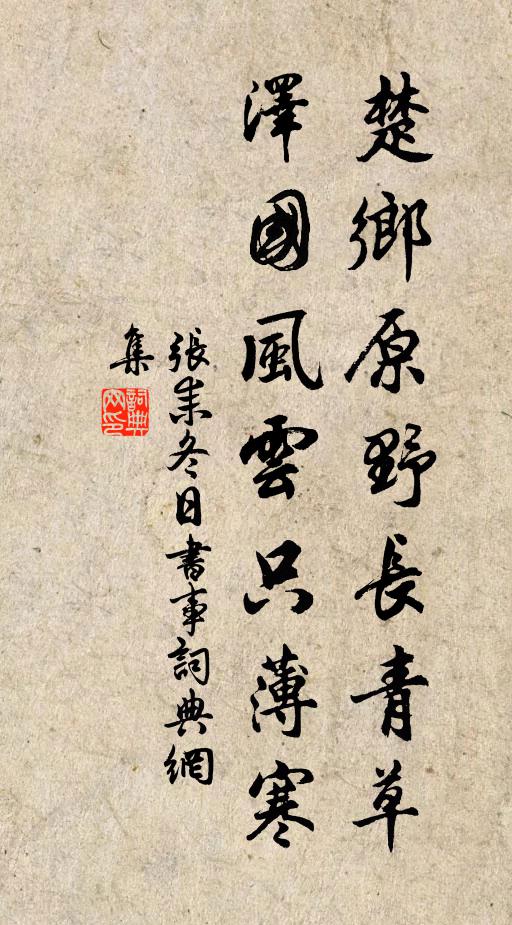 楚鄉原野長青草
澤國風雲只薄寒
張耒冬日書事詞典網
集
詞典
网印